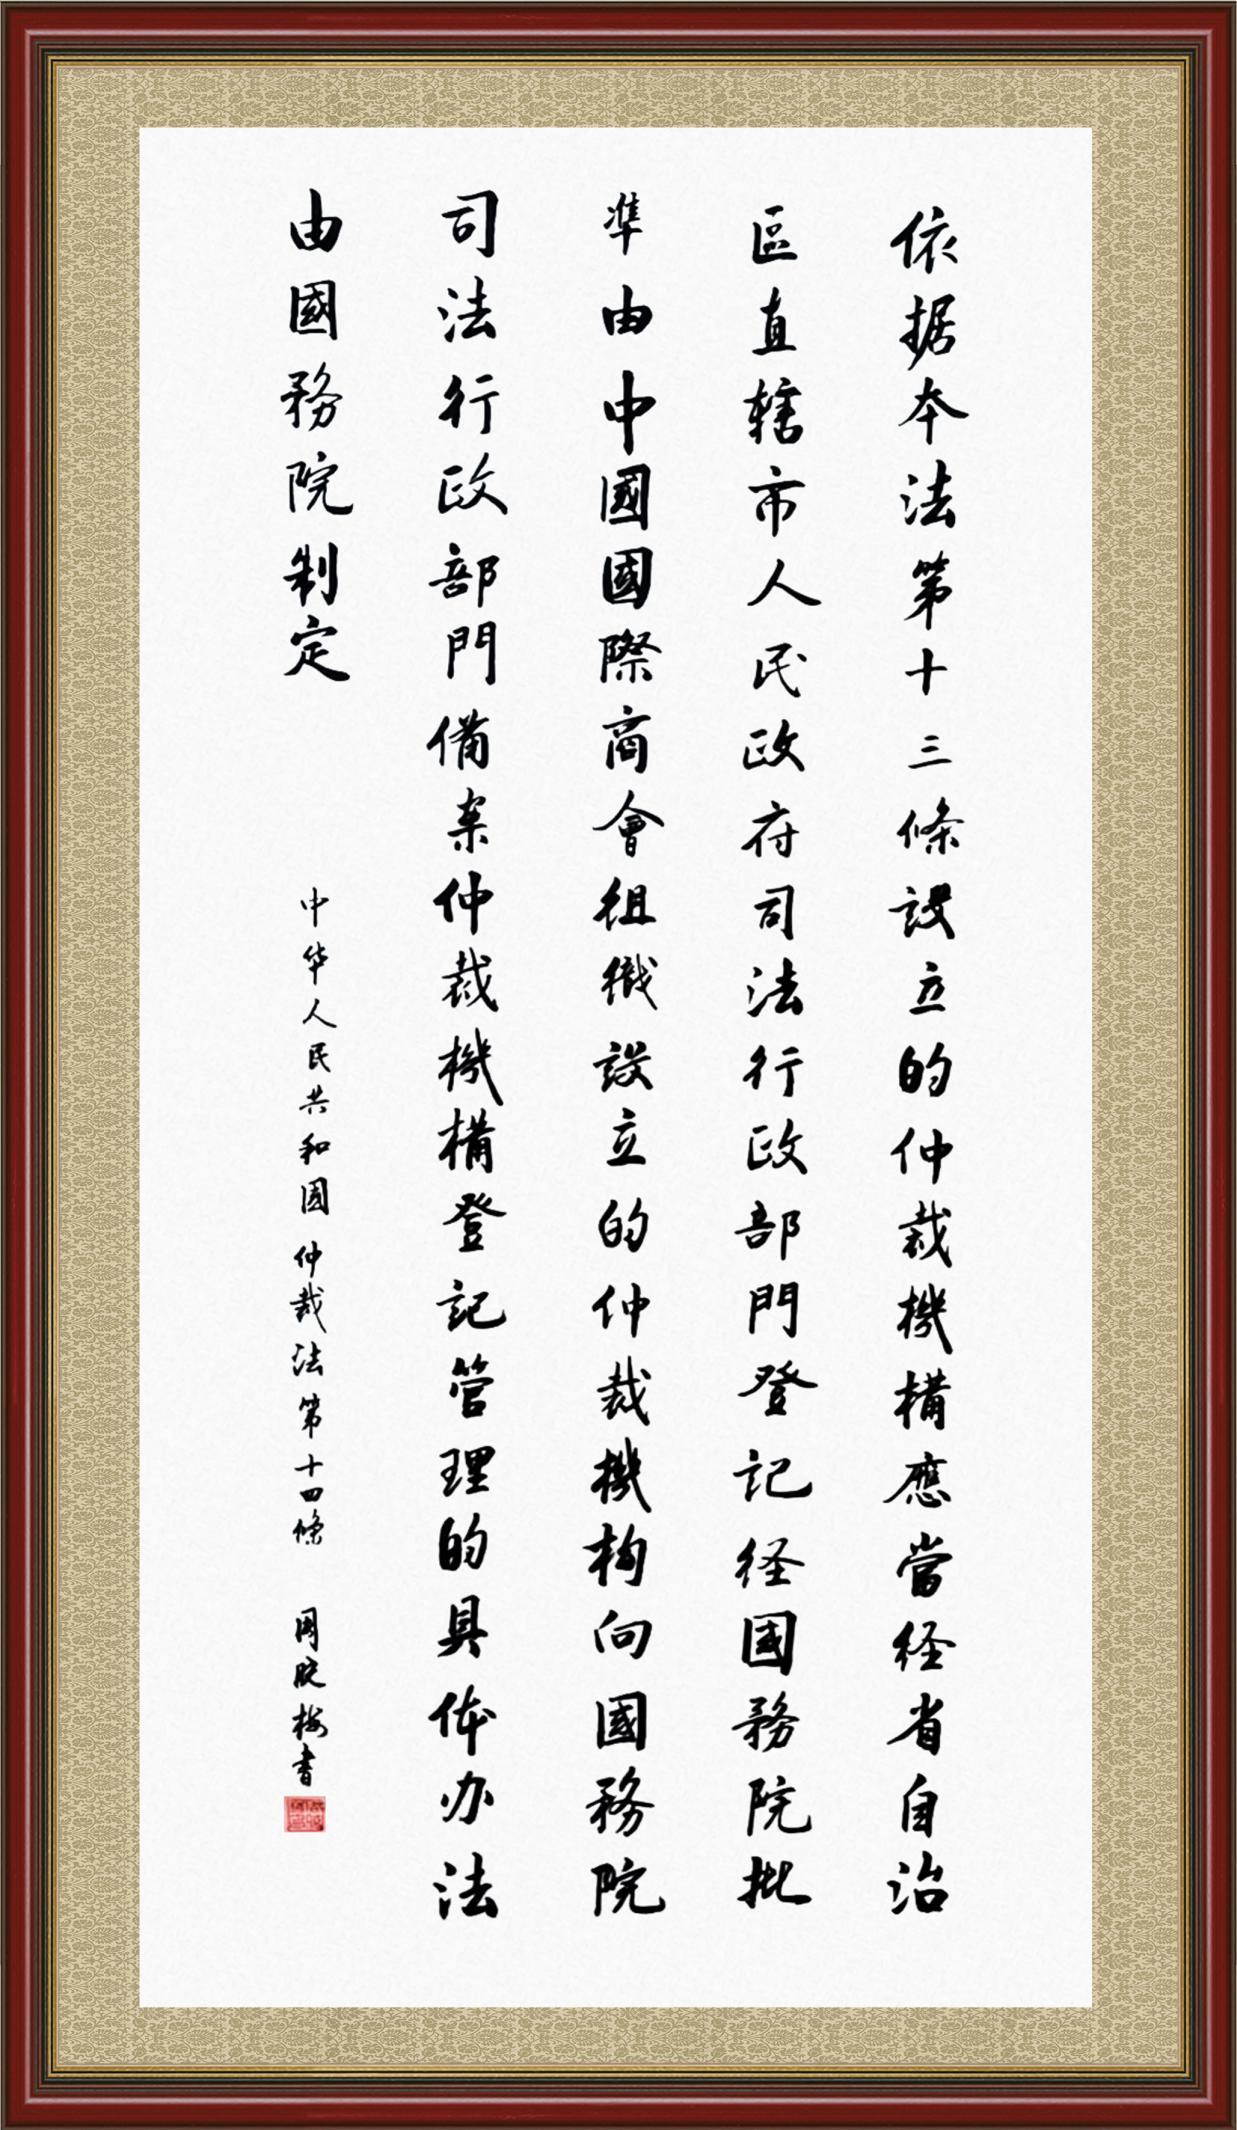 依据本法第十三條設立的仲裁機構應當経省自治
區直辖市人民政府司法行政部門登記経國務院批
準由中國國際商會組織設立的仲裁機构向國務院
司法行政部門備案仲裁機構登記管理的具体办法
由國務院制定
中华人民共和國仲裁法第十四條 周梅書